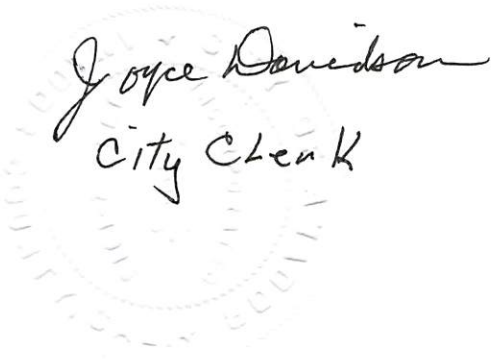 Joyce Davidson
City Clerk